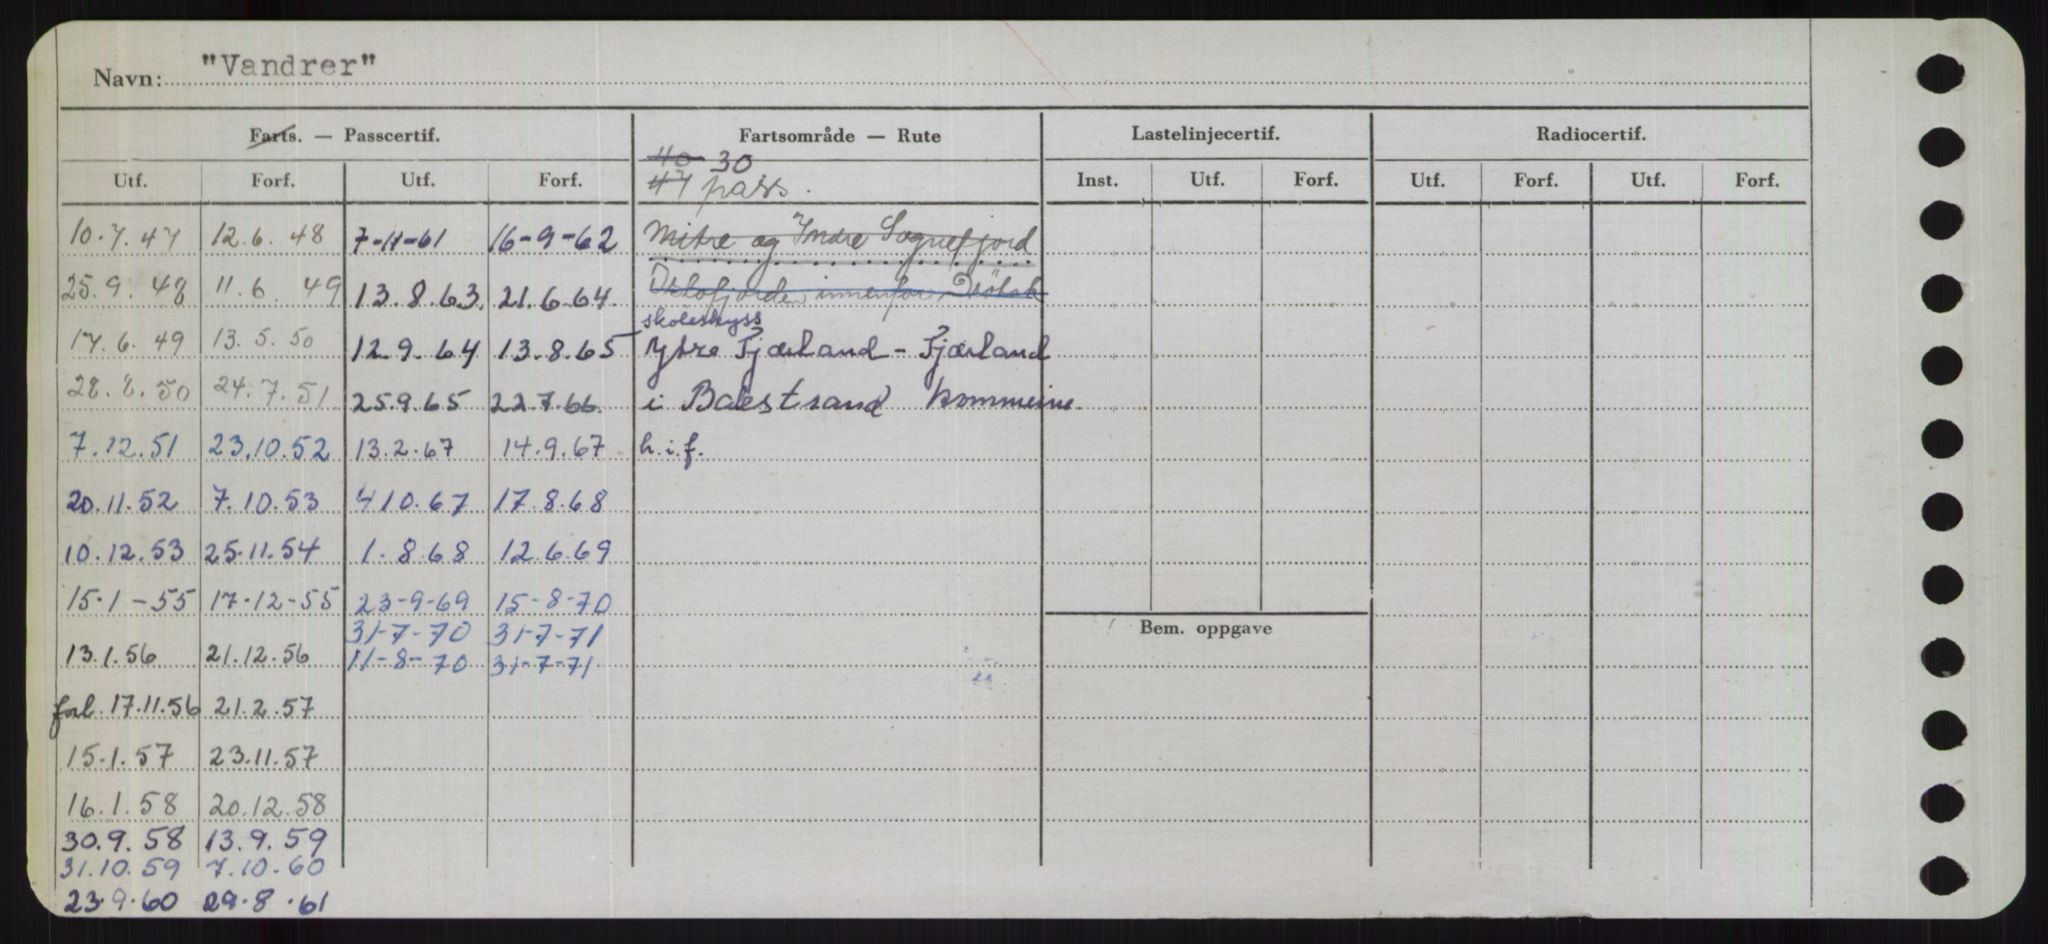 Navn: "Vandrer"
Farts. — Passcertif. Fartsområde — Rute Lastelinjecertif. Radiocertif.
40 30
Utf. Forf. Utf. Forf. 47 pass. Inst. Utf. Forf. Utf. Forf. Utf. Forf.
10.7.47 12.6.48 7-11-61 16-9-62 Mitre og Indre Sognefjord
25.9.48 11.6.49 13.8.63. 21.6.64 Oslofjorden innenfor Dröbak
skoleskyss
17.6.49 13.5.50 12.9.64 13.8.65 Ytre Fjærland - Fjærland
28.8.50 24.7.51 25.9.65 22.7.66. i Balestrand kommune.
7.12.51 23.10.52 13.2.67 14.9.67 h.i.f.
20.11.52 7.10.53 4 10.67 17.8.68
10.12.53 25.11.54 1.8.68 12.6.69
15.1-55 17-12-55 23-9-69 15-8-70
31-7-70 31-7-71 Bem. oppgave
13.1.56 21.12.56 11-8-70 31-7-71
forl. 17.11.56 21.2.57
15.1.57 23.11.57
16.1.58 20.12.58
30.9.58 13.9.59
31.10.59 7.10.60
23.9.60 29.8.61